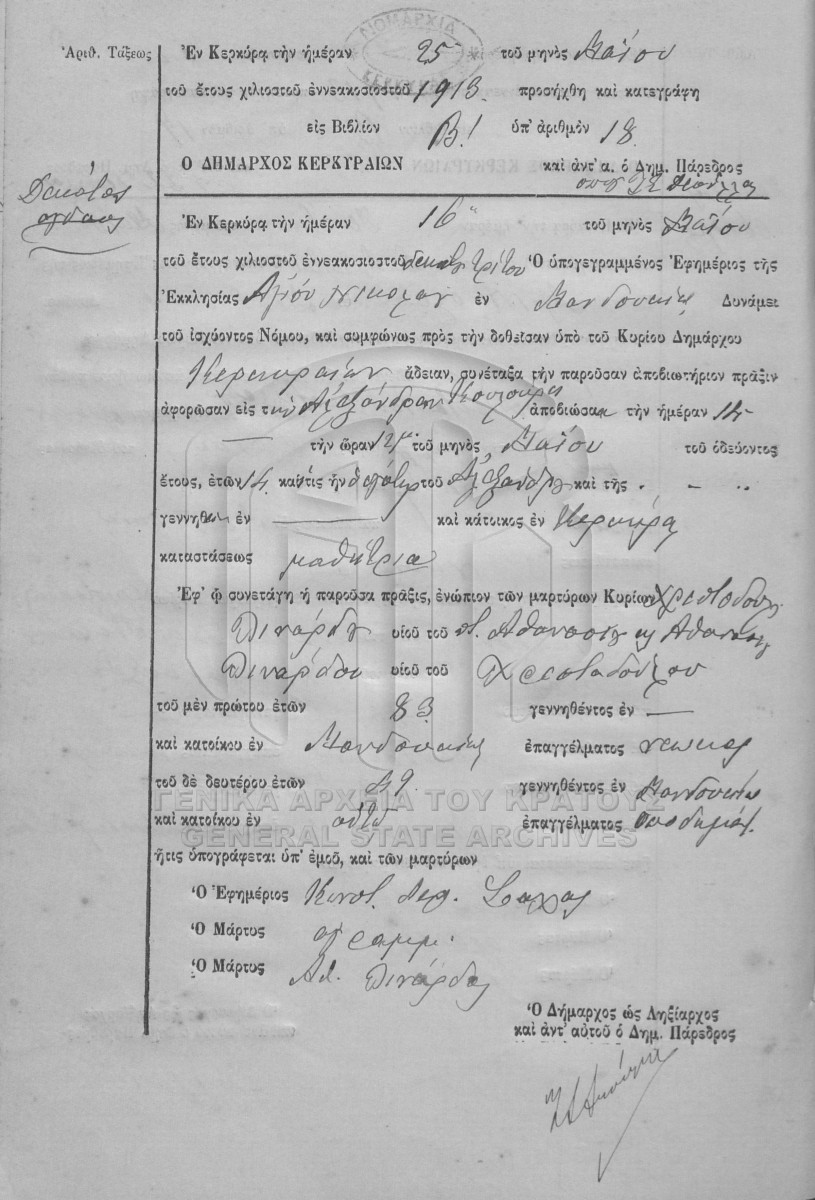 Ἀριθ. Τάξεως
Ἐν Κερκύρᾳ τὴν ἡμέραν 25 τοῦ μηνὸς Μαΐου
τοῦ ἔτους χιλιοστοῦ ἐννεακοσιοστοῦ 1913 προσήχθη καὶ κατεγράφη
εἰς Βιβλίον Β! ὑπ' ἀριθμὸν 18
Ο ΔΗΜΑΡΧΟΣ ΚΕΡΚΥΡΑΙΩΝ καὶ ἀντ' α. ὁ Δημ. Πάρεδρος
Δέκατος
ὄγδοος
Ἐν Κερκύρᾳ τὴν ἡμέραν 16 τοῦ μηνὸς Μαΐου
τοῦ ἔτους χιλιοστοῦ ἐννεακοσιοστοῦ δεκάτου τρίτου Ὁ ὑπογεγραμμένος Ἐφημέριος τῆς
Ἐκκλησίας Ἁγίου Νικολάου ἐν Μανδουκίῳ Δυνάμει
τοῦ ἰσχύοντος Νόμου, καὶ συμφώνως πρὸς τὴν δοθεῖσαν ὑπὸ τοῦ Κυρίου Δημάρχου
Κερκυραίων ἄδειαν, συνέταξα τὴν παροῦσαν ἀποβιωτήριον πρᾶξιν
ἀφορῶσαν εἰς τὴν Ἀλεξάνδραν ἀποβιώσασαν τὴν ἡμέραν 14
— τὴν ὥραν 12 μμ τοῦ μηνὸς Μαΐου τοῦ ὁδεύοντος
ἔτους, ἐτῶν 14 καὶ τις ἦν θυγάτηρ τοῦ Ἀλεξάνδρου καὶ τῆς . - ..
γεννηθ ἐν — καὶ κάτοικος ἐν Κερκύρᾳ
καταστάσεως μαθήτρια
Ἐφ' ᾧ συνετάγη ἡ παροῦσα πρᾶξις, ἐνώπιον τῶν μαρτύρων Κυρίων Χριστοδούλου
Πινάρδου υἱοῦ τοῦ π. Ἀθανασίου κ Ἀθανασίου
Πινάρδου υἱοῦ τοῦ Χριστοδούλου
τοῦ μὲν πρώτου ἐτῶν 83 γεννηθέντος ἐν —
καὶ κατοίκου ἐν Μανδουκίῳ ἐπαγγέλματος
τοῦ δὲ δευτέρου ἐτῶν γεννηθέντος ἐν Μανδουκίῳ
καὶ κατοίκου ἐν αὐτῷ ἐπαγγέλματος ὑποδηματ.
ἥτις ὑπογράφεται ὑπ' ἐμοῦ, καὶ τῶν μαρτύρων
Ὁ Ἐφημέριος Κωνστ.
Ὁ Μάρτυς ἀγράμμ.
Ὁ Μάρτυς Αθ. Πινάρδος
Ὁ Δήμαρχος ὡς Ληξίαρχος
καὶ ἀντ' αὐτοῦ ὁ Δημ. Πάρεδρος
ΓΕΝΙΚΑ ΑΡΧΕΙΑ ΤΟΥ ΚΡΑΤΟΥΣ
GENERAL STATE ARCHIVES